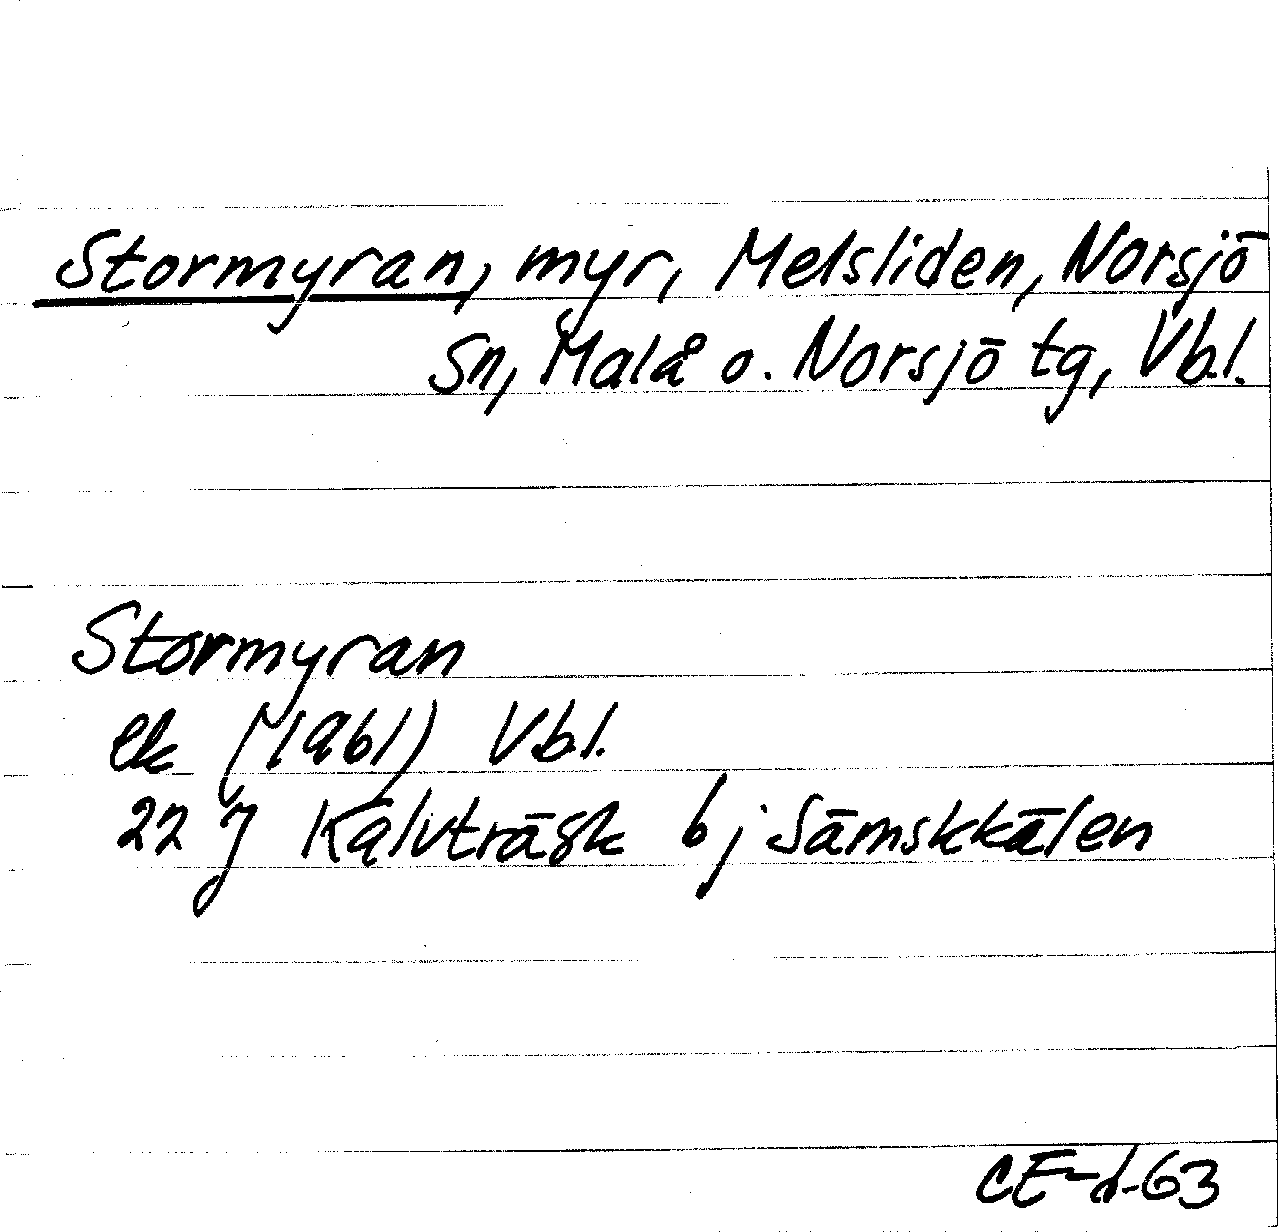 Stormyran, myr, Melsliden, Norsjö
Sn, Malå o. Norsjö tg, Vb.l.
Stormyran
ek (1961) Vb.l.
22 J Kalvträsk bj Sämskkälen
CE-d-63